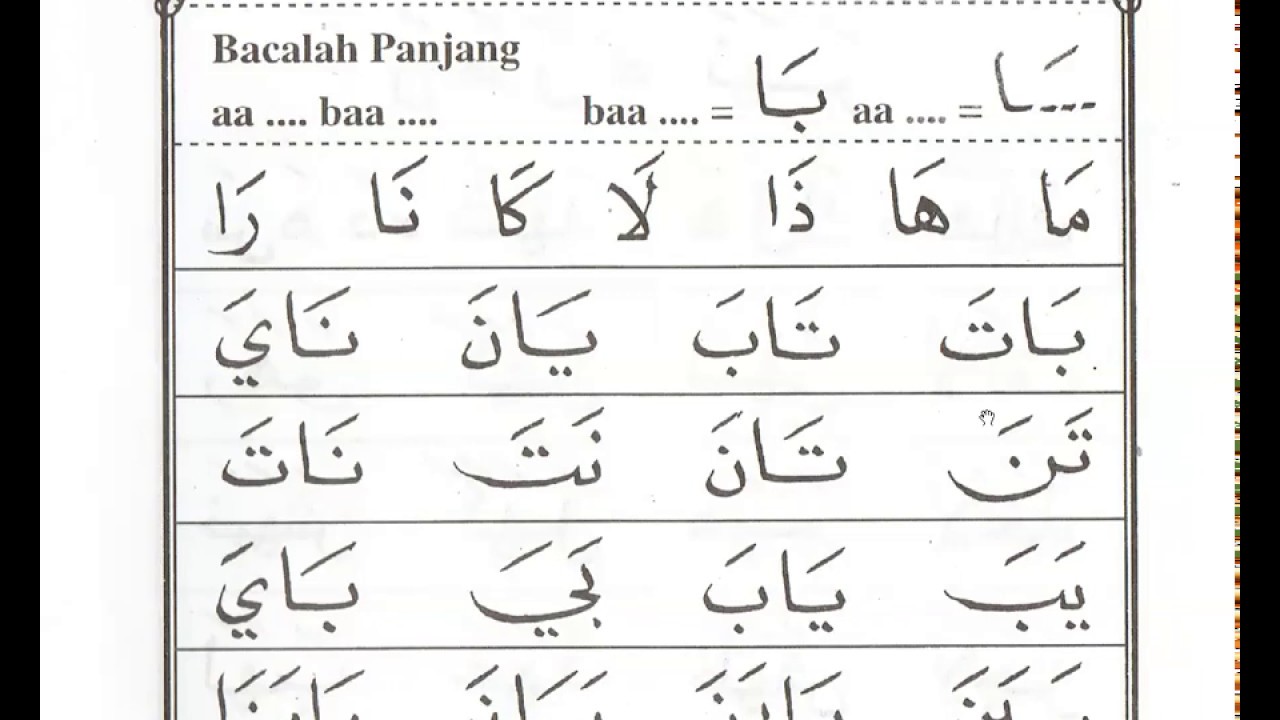 Bacalah Panjang
aa .... baa .... baa .... = بَا aa .... = ـَا
مَا هَا ذَا لَا كَا نَا رَا
بَاتَ تَابَ يَانَ نَايَ
تَنَ تَانَ نَتَ نَاتَ
يَبَ يَابَ بَيَ بَايَ